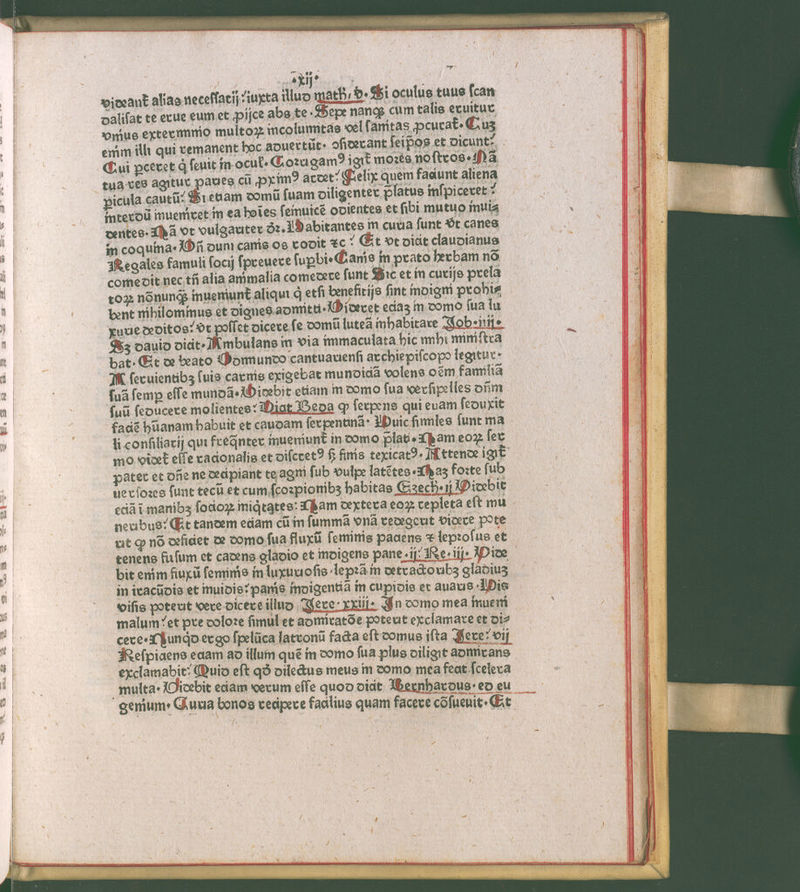 ·xij·
videant̄ alias necessarij: iuxta illud math̄. v. Si oculus tuus scan
dalisat te erue eum et ꝓijce abs te. Sepe nanqꝫ cum talis eruitur
vnius exterminio multoꝝ incolumitas vel sanitas ꝓcurat̄. Cuꝫ
enim illi qui remanent hoc aduertūt. ↄsiderant seip̄os et dicunt:
Cui ꝑceret q̇ seuit in ocul̄. Corugamꝰ igit̄ mores nostros. Nā
tua res agitur paries cū ꝓximꝰ ardet: Felix quem faciunt aliena
ꝑicula cautū: Si etiam domū suam diligenter p̄latus inspiceret:
interdū inueniret in ea hoīes seinuicē odientes et sibi mutuo inui⸗
dentes. Nā vt vulgariter dr̄. Habitantes in curia sunt vt canes
in coquina. Dn̄ duni canis os rodit ⁊c: Et vt dicit claudianus
Regales famuli socij spreuere suꝑbi. Canis in prato herbam nō
comedit nec tn̄ alia animalia comedere sunt Sic et in curijs prela
toꝝ nōnunqꝫ inueniunt̄ aliqui q̇ etsi beneficijs sint indigni prohi⸗
bent nihilominus et dignes admitti. Videret eciaꝫ in domo sua lu
xurie deditos: vt posset dicere se domū luteā inhabitare Job. iiij.
Sꝫ dauid dicit. Ambulans in via immaculata hic mihi ministra
bat. Et de beato Edmundo cantuariensi archiepiscopo legitur.
A seruientibꝫ suis carnis exigebat mundiciā volens oēm familiā
suā semꝑ esse mundā. Videbit etiam in domo sua versipelles dn̄m
suū seducere molientes: Dicit Beda ꝙ serpens qui euam seduxit
faciē hūanam habuit et caudam serpentinā. Huic similes sunt ma
li consiliarij qui freq̄nter inueniunt̄ in domo p̄lati. Nam eoꝝ ser
mo videt̄ esse racionalis et discretꝰ sꝫ finis texicatꝰ. Attende igit̄
pater et dn̄e ne decipiant te agni sub vulpe latētes. Naꝫ forte sub
uersores sunt tecū et cum scorpionibꝫ habitas Ezech. ij Videbit
eciā ī manibꝫ socioꝝ iniq̄tates: Nam dextera eoꝝ repleta est mu
neribus: Et tandem eciam cū in summā vnā redegerit videre pote
rit ꝙ nō deficiet de domo sua fluxū seminis paciens ⁊ leprosus et
tenens fusum et cadens gladio et indigens pane. ij. Re. iij. Vide
bit enim fluxū seminis in luxuriosis. leprā in detractoribꝫ gladiuꝫ
in iracūdis et inuidis: panis indigentiā in cupidis et auaris. His
visis poterit vere dicere illud Jere. xxiij. In domo mea inueni
malum: et pre dolore simul et admiratōe poterit exclamare et di⸗
cere. Nunqd ergo spelūca latronū facta est domus ista Jere. vij
Respiciens eciam ad illum quē in domo sua plus diligit admirans
exclamabit: Quid est qd̄ dilectus meus in domo mea fecit scelera
multa. Videbit eciam verum esse quod dicit Bernhardus. ad eu
genium. Curia bonos recipere facilius quam facere cōsueuit. Et